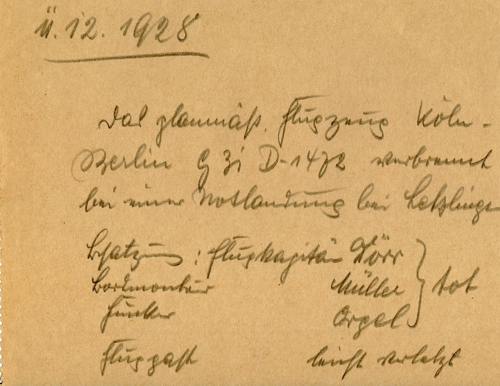 11.12.1928
Das planmäß. Flugzeug Köln-
Berlin G 31 D-1472 verbrennt
bei einer Notlandung bei Letzlingen
Besatzung: Flugkapitän Dörr
Bordmonteur Müller } tot
Funker Orgel
Fluggast leicht verletzt